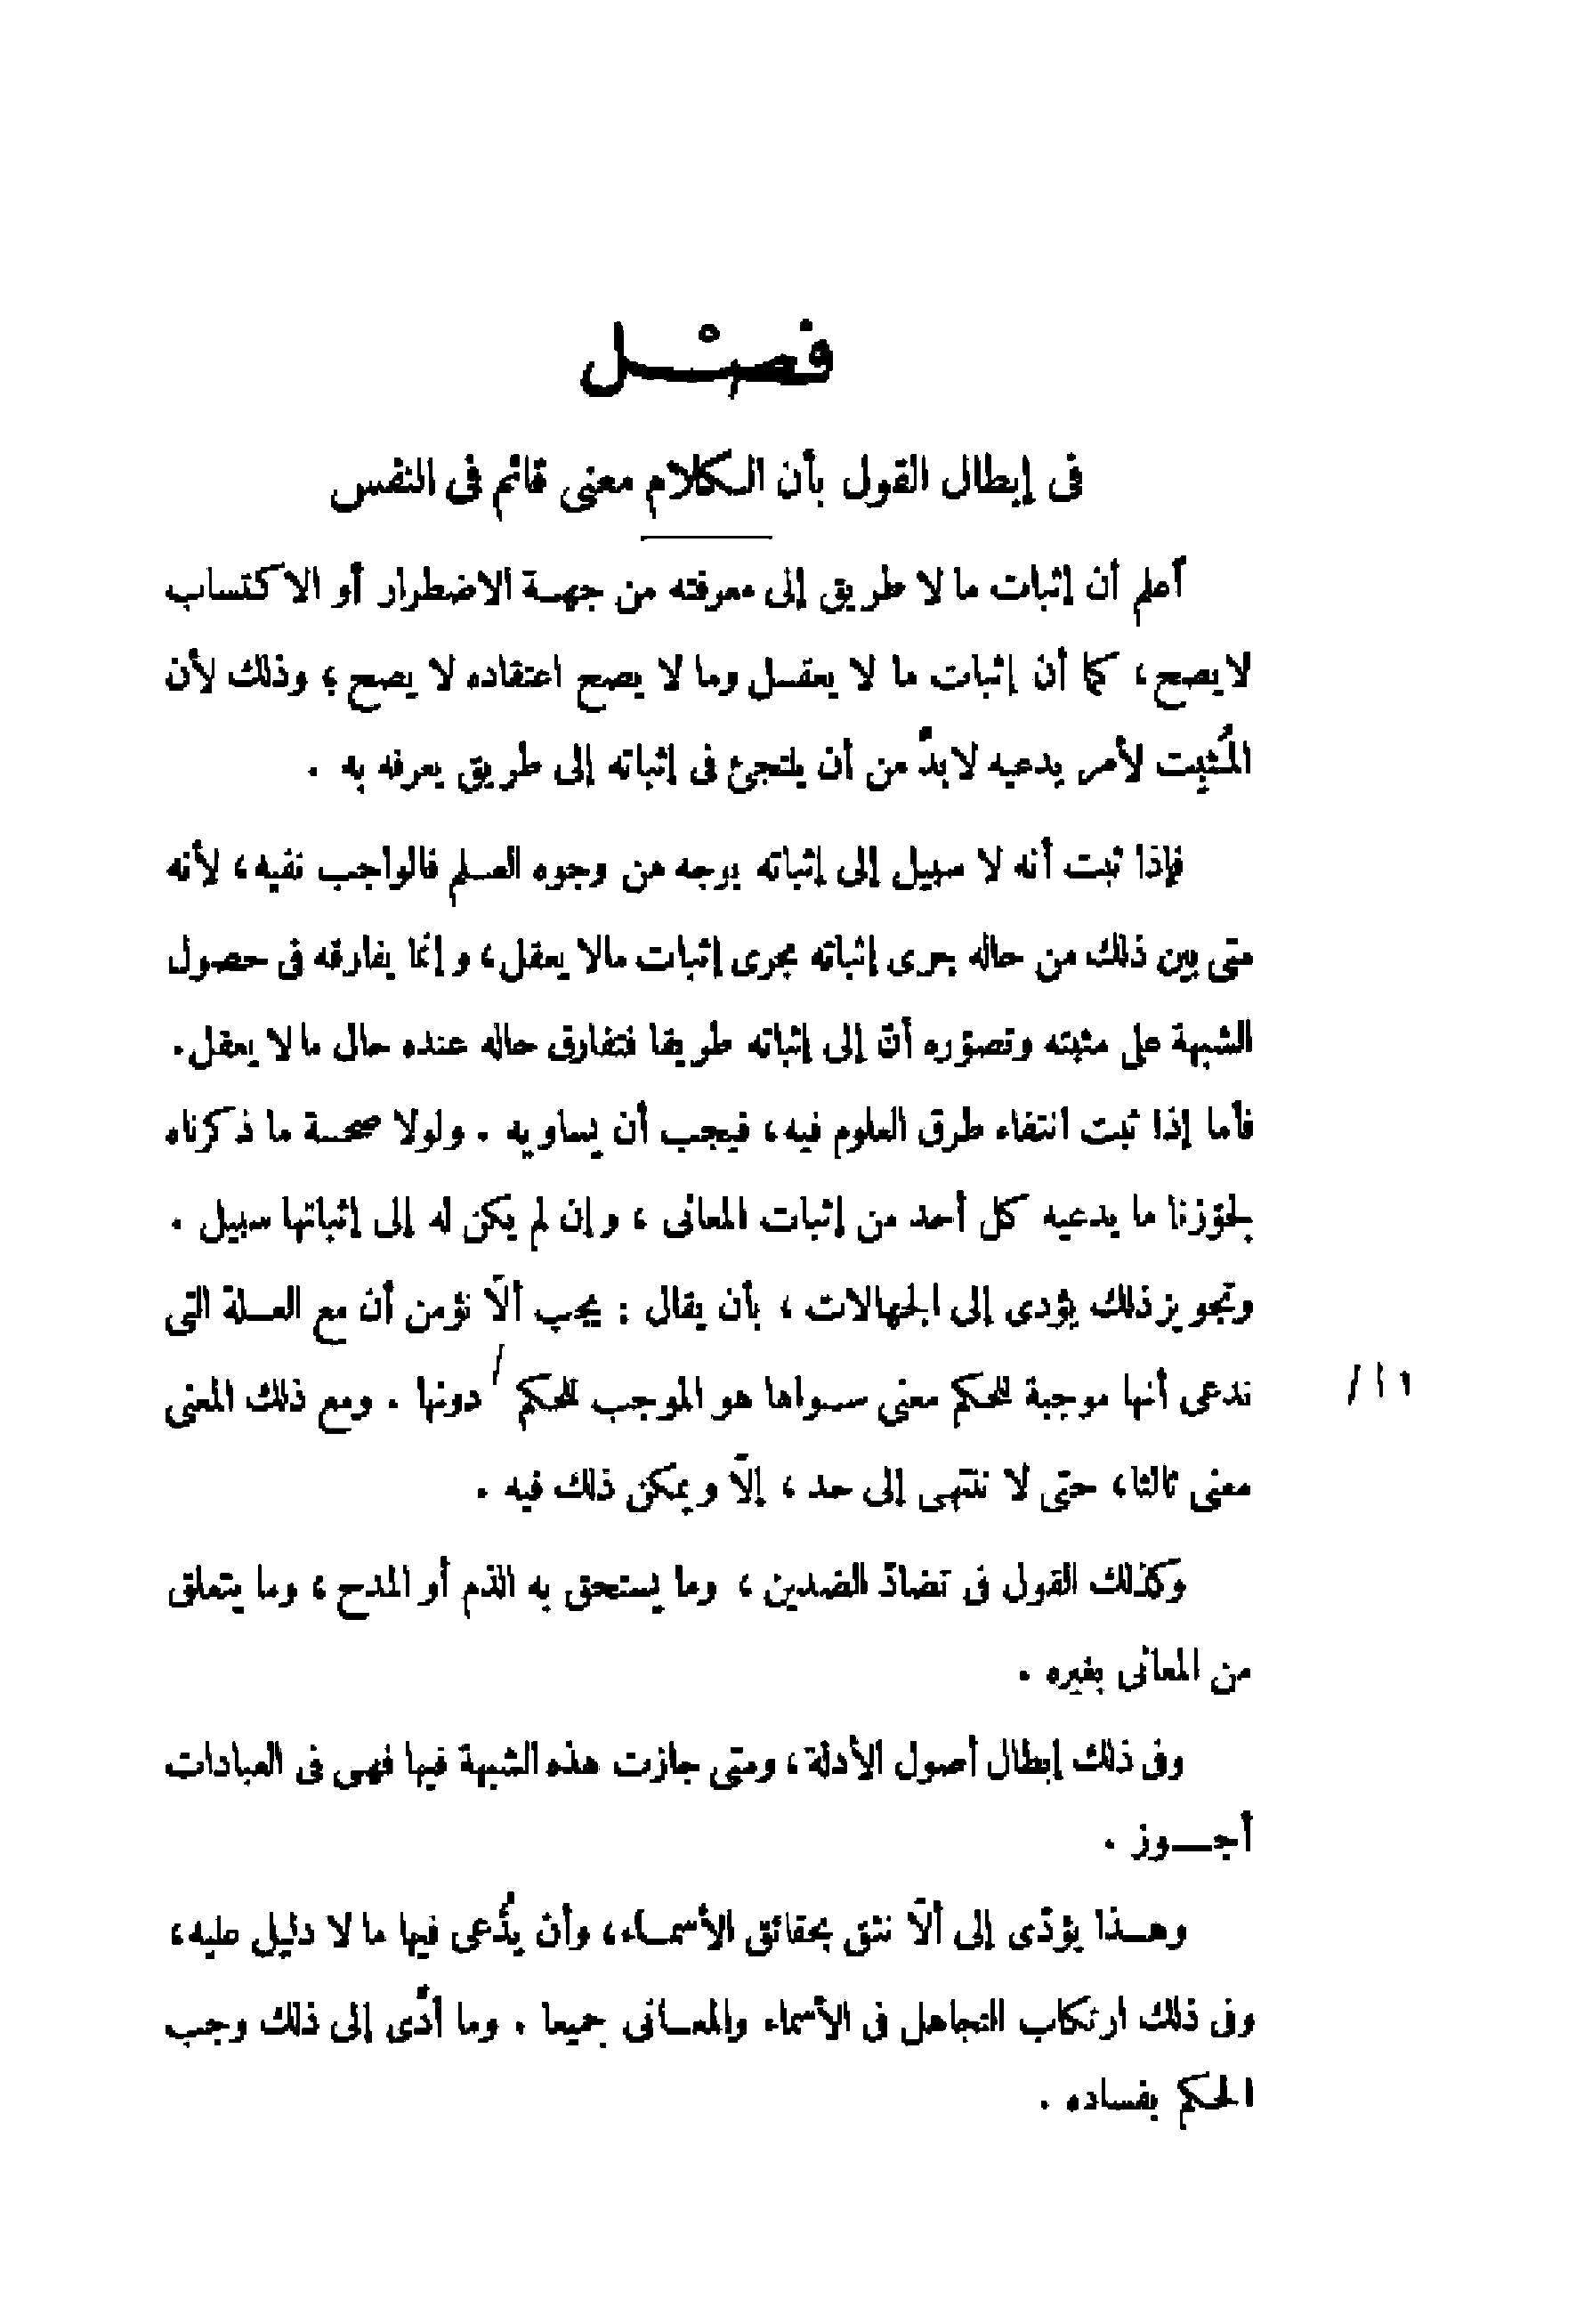 فصل
فى إبطال القول بأن الكلام معنى قائم فى النفس
أعلم أن إثبات ما لا طريق إلى معرفته من جهة الاضطرار أو الاكتساب
لا يصح، كما أن إثبات ما لا يعقل وما لا يصح اعتقاده لا يصح، وذلك لأن
المُثبِت لأمر يدعيه لابدّ من أن يلتجئ فى إثباته إلى طريق يعرفه به .
فإذا ثبت أنه لا سبيل إلى إثباته بوجه من وجوه العلم فالواجب نفيه، لأنه
متى بين ذلك من حاله جرى إثباته مجرى إثبات مالا يعقل، وإنما يفارقه فى حصول
الشبهة على مثبته وتصوّره أنّ إلى إثباته طريقا فتفارق حاله عنده حال ما لا يعقل.
فأما إذا ثبت انتفاء طرق العلوم فيه، فيجب أن يساويه . ولولا صحة ما ذكرناه
لجوّزنا ما يدعيه كل أحد من إثبات المعانى، وإن لم يكن له إلى إثباتها سبيل .
وتجويز ذلك يؤدى إلى الجهالات، بأن يقال : يجب ألّا نؤمن أن مع العلة التى
ندعى أنها موجبة للحكم معنى سواها هو الموجب للحكم / دونها . ومع ذلك المعنى
١٦ /
معنى ثالثا، حتى لا ننتهى إلى حد، إلّا ويمكن ذلك فيه .
وكذلك القول فى تضادّ الضدين، وما يستحق به الذم أو المدح، وما يتعلق
من المعانى بغيره .
وفى ذلك إبطال أصول الأدلة، ومتى جازت هذه الشبهة فيها فهى فى العبادات
أجوز .
وهذا يؤدّى إلى ألّا نثق بحقائق الأسماء، وأن يُدّعى فيها ما لا دليل عليه،
وفى ذلك ارتكاب التجاهل فى الأسماء والمعانى جميعا . وما أدّى إلى ذلك وجب
الحكم بفساده .